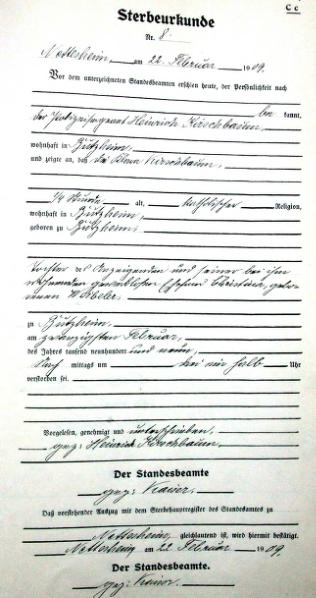 C c
Sterbeurkunde
Nr. 8.
Nettesheim, am 22. Februar 1909.
Vor dem unterzeichneten Standesbeamten erschien heute, der Persönlichkeit nach
be kannt,
der Polizeisergeant Heinrich Kirschbaum,
wohnhaft in Bützheim,
und zeigte an, daß die Kirschbaum,
1/4 Stunde alt, katholischer Religion,
wohnhaft in Bützheim,
geboren zu Bützheim,
Tochter des Anzeigenden und seiner bei ihm
wohnenden Ehefrau Christina, gebo-
renen
zu Bützheim,
am zwanzigsten Februar,
des Jahres tausend neunhundert und neun,
Nach mittags um halb Uhr
verstorben sei.
Vorgelesen, genehmigt und unterschrieben,
gez: Heinrich Kirschbaum,
Der Standesbeamte
gez: Kaiser.
Daß vorstehender Auszug mit dem Sterbehauptregister des Standesamtes zu
Nettesheim gleichlautend ist, wird hiermit bestätigt.
Nettesheim am 22 Februar 1909.
Der Standesbeamte.
gez: Kaiser.